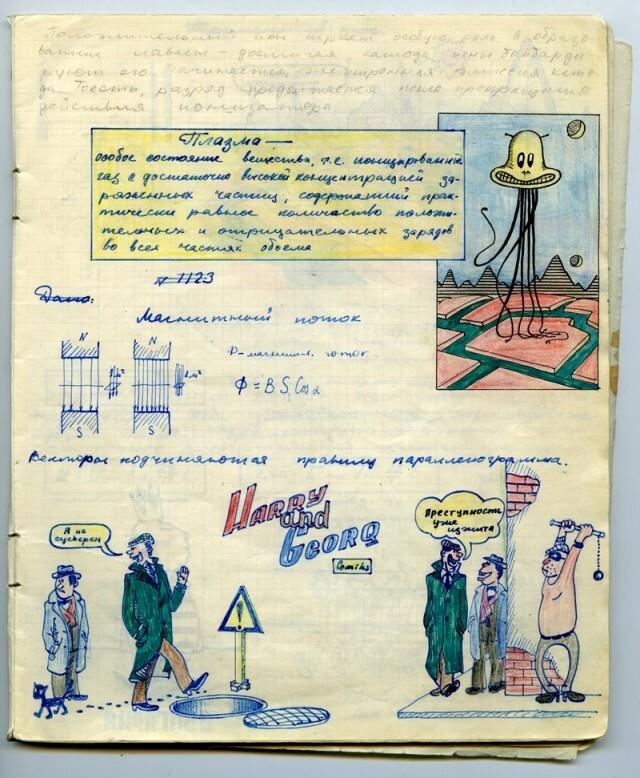 Положительный ион играет особую роль в образо-
вании лавины - достигая катода, ионы бомбарди
руют его. Начинается электронная эмиссия като-
да. Тоесть, разряд продолжается после прекращения
действия ионизатора
Плазма —
особое состояние вещества, т.е. ионизированный
газ с достаточно высокой концентрацией за-
ряженных частиц, содержащий прак-
тически равное количество положи-
тельных и отрицательных зарядов
во всех частях объема
№ 1123
Дано:
Магнитный поток
N N
Ф - магнитн. поток
Ф = B S Cos α
S S
Векторы подчиняются правилу параллелограмма.
Harry
and
Georg
Comiks
Я не
суеверен
Преступность
уже
изжита